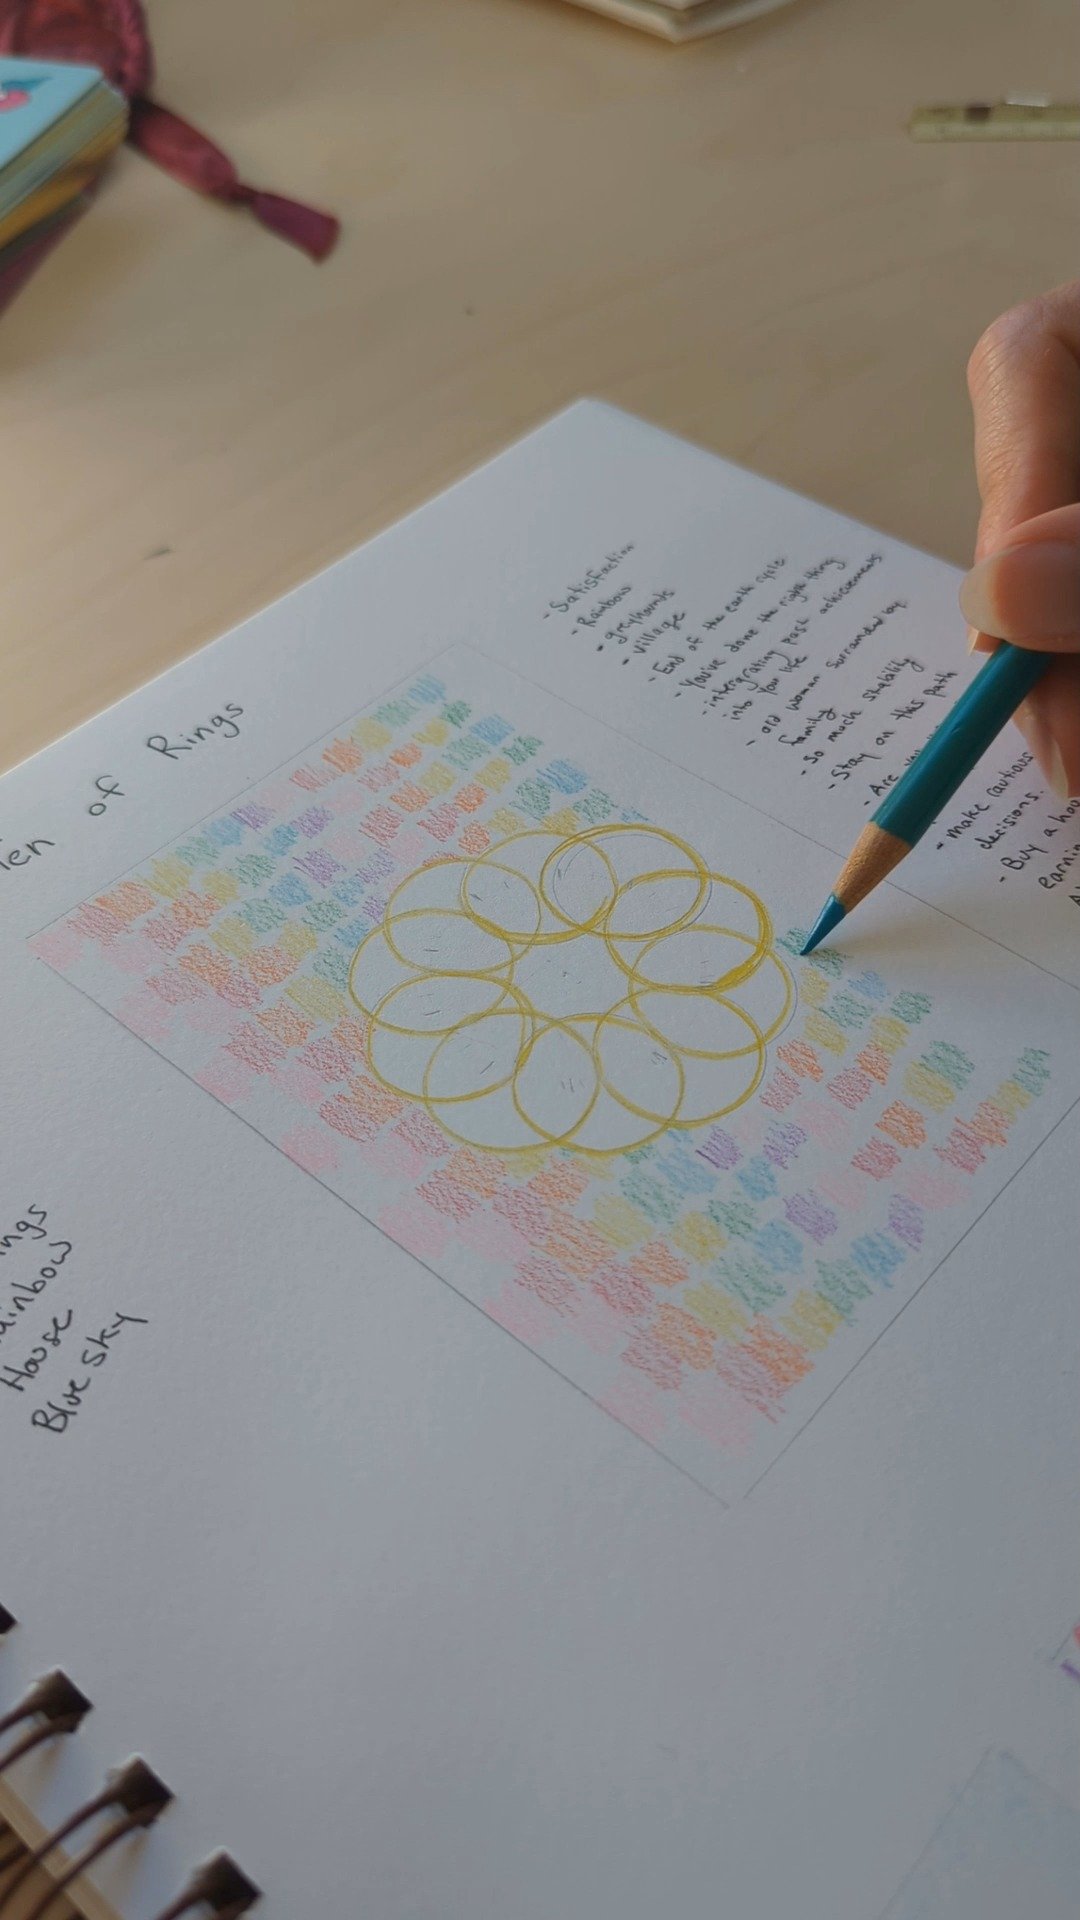 of Rings
- Satisfaction
- Rainbow
- greyhounds
- village
- End of the earth cycle
- You've done the right thing
- intergrating past achievements
into your life
- old woman surrounded by
family
- So much stability
- Stay on this path
- Are you
- make cautious
decisions.
- Buy a
House
Blue sky